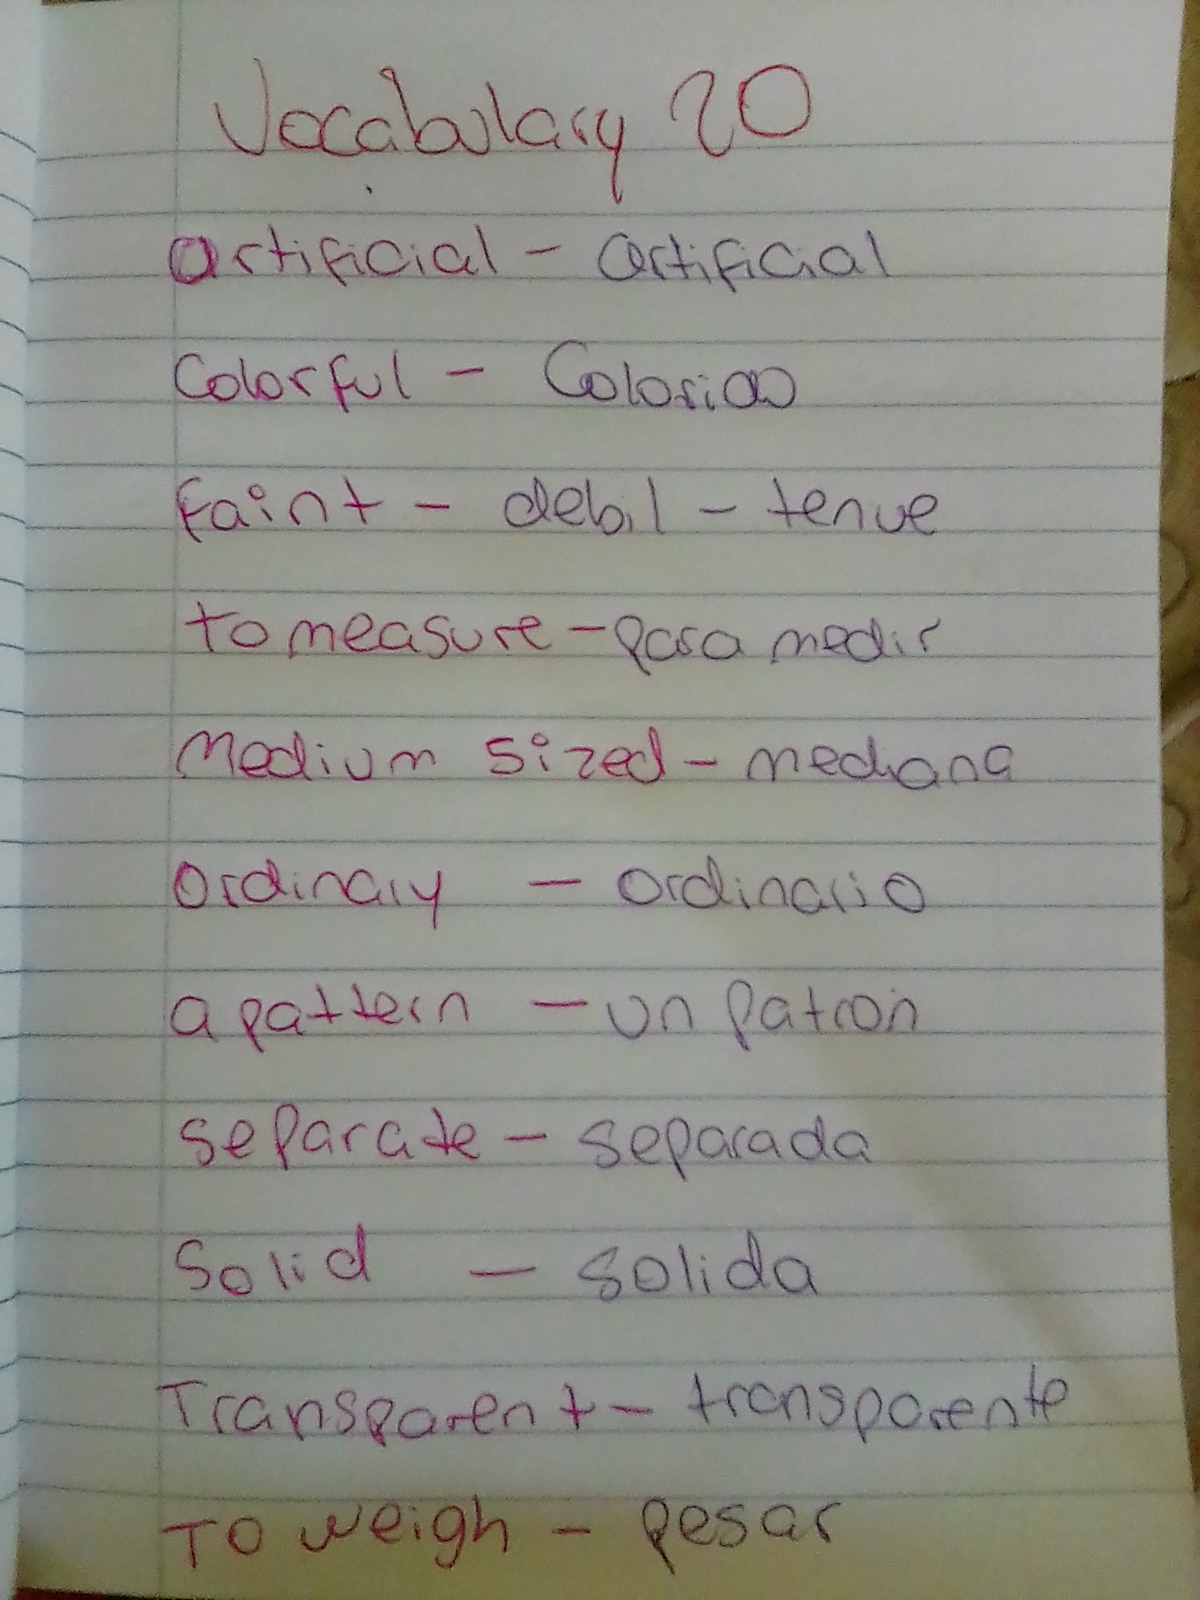 Vocabulary 20
artificial - artificial
Colorful - Colorido
Faint - debil - tenue
to measure - para medir
Medium sized - mediana
Ordinary - ordinario
a pattern - un patron
separate - separada
Solid - solida
Transparent - transparente
To weigh - pesar